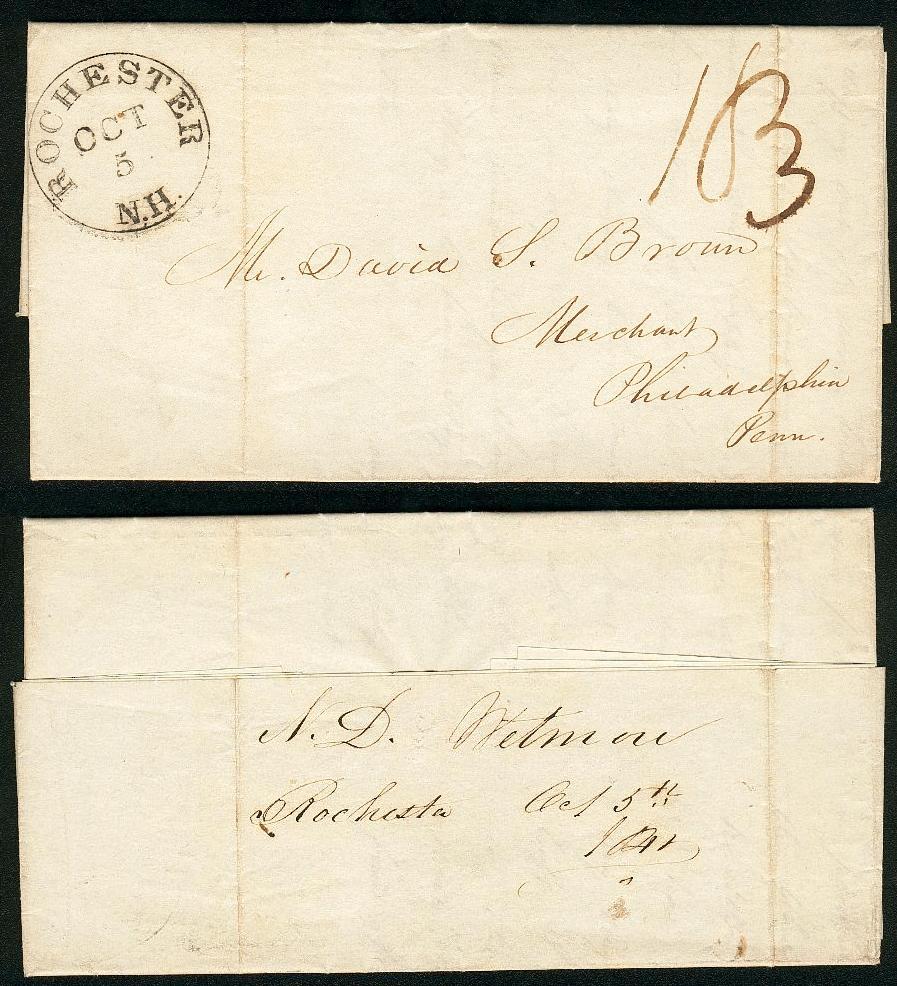 ROCHESTER
OCT
5
N.H.
183
Mr. David S. Brown
Merchant
Philadelphia
Penn.
N. D. Wetmore
Rochester Oct 5th
1841